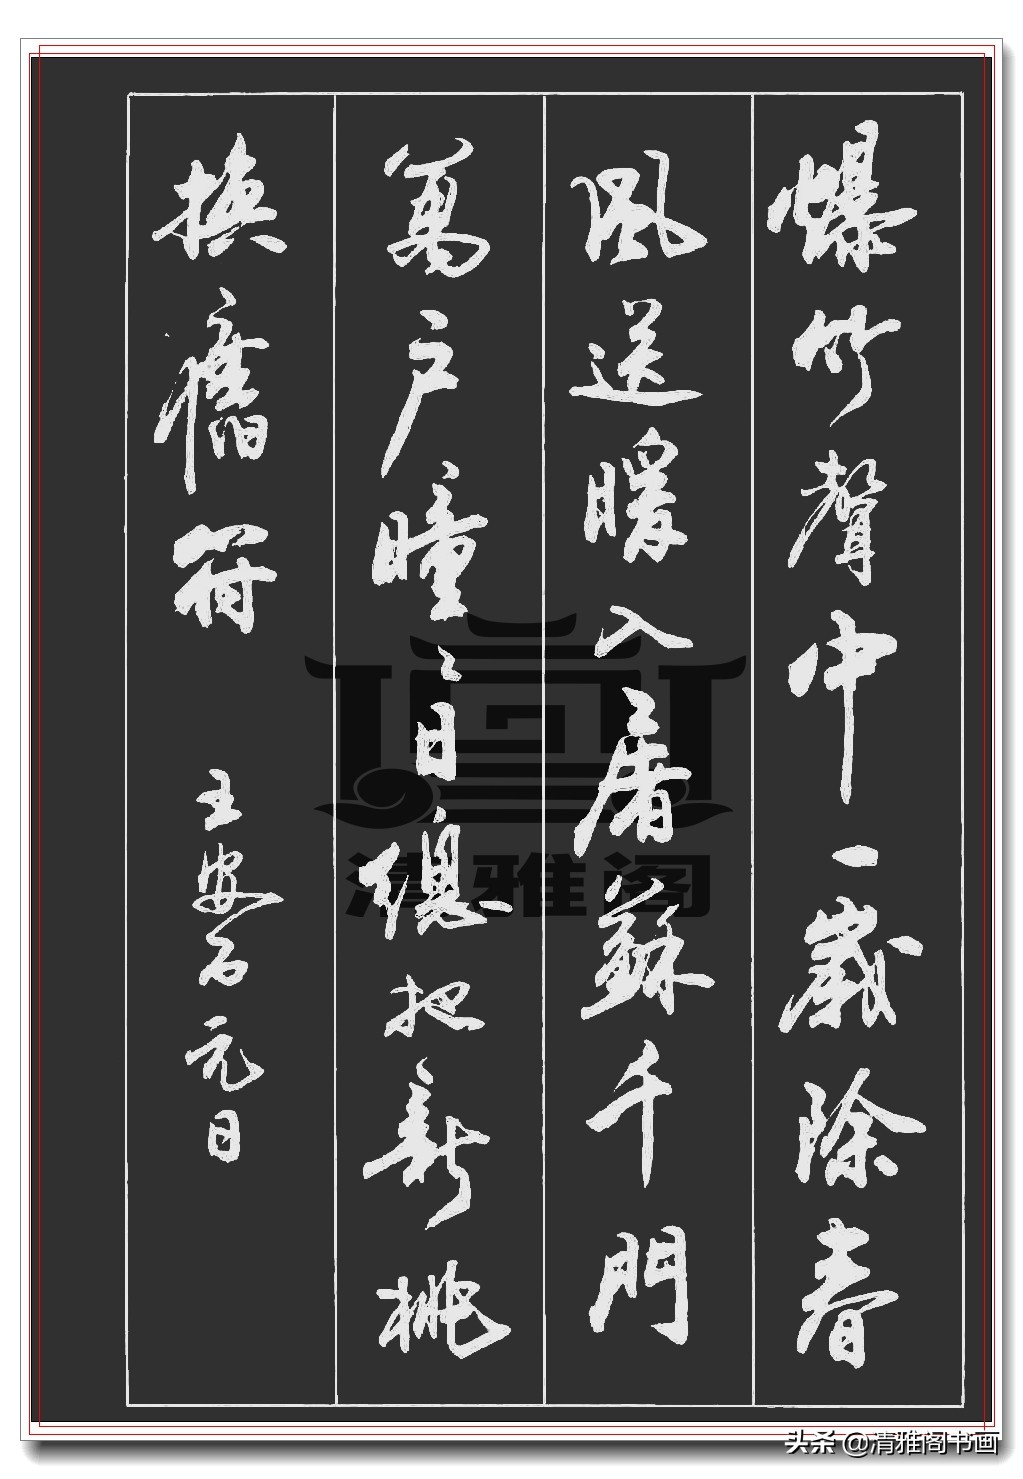 爆竹聲中一歲除春
風送暖入屠蘇千門
萬戶曈々日總把新桃
換舊符
王安石元日
清雅阁
头条 @清雅阁书画